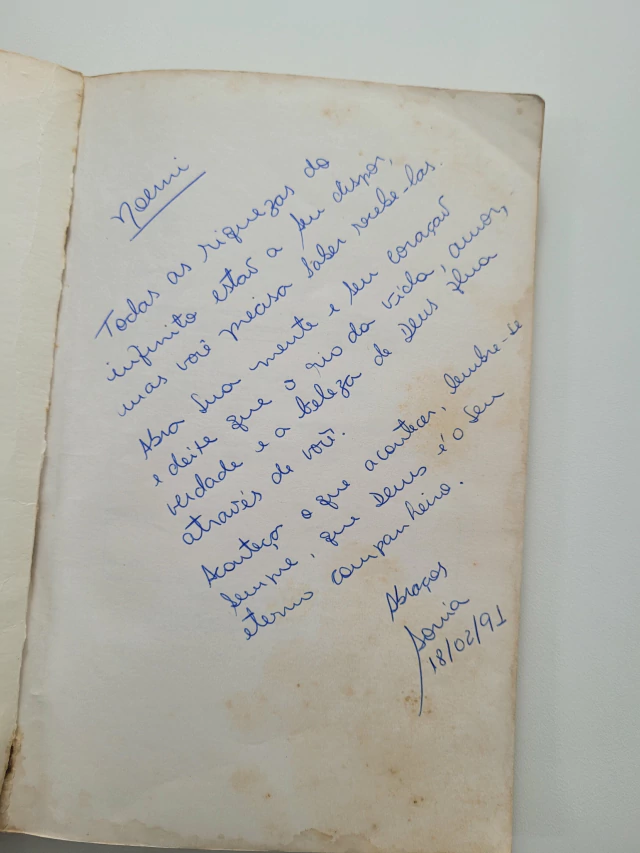 Noemi
Todas as riquezas do
infinito estão a seu dispor,
mas você precisa saber recebe-las.
Abra sua mente e seu coração
e deixe que o rio da vida, amor,
verdade e a beleza de Deus flua
através de você.
Aconteça o que acontecer, lembre-se
sempre, que Deus é o seu
eterno companheiro.
Abraços
Sonia
18/02/91